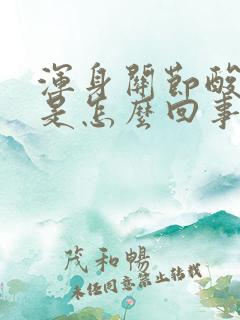 渾身關節酸
是怎麼回事
茂和暢
未經同意禁止轉載